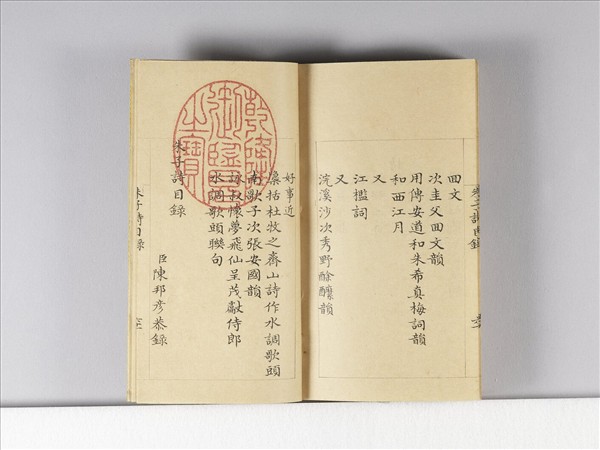 朱子詩目錄
回文
次圭父回文韻
用傅安道和朱希真梅詞韻
和西江月
又
江檻詞
又
浣溪沙次秀野酴醾韻
好事近
檃括杜牧之齊山詩作水調歌頭
南歌子次張安國韻
詠叔懷夢飛仙呈茂獻侍郎
水調歌頭聯句
乾隆御覽之寶
朱子詩目錄
臣陳邦彥恭錄
朱子詩目錄